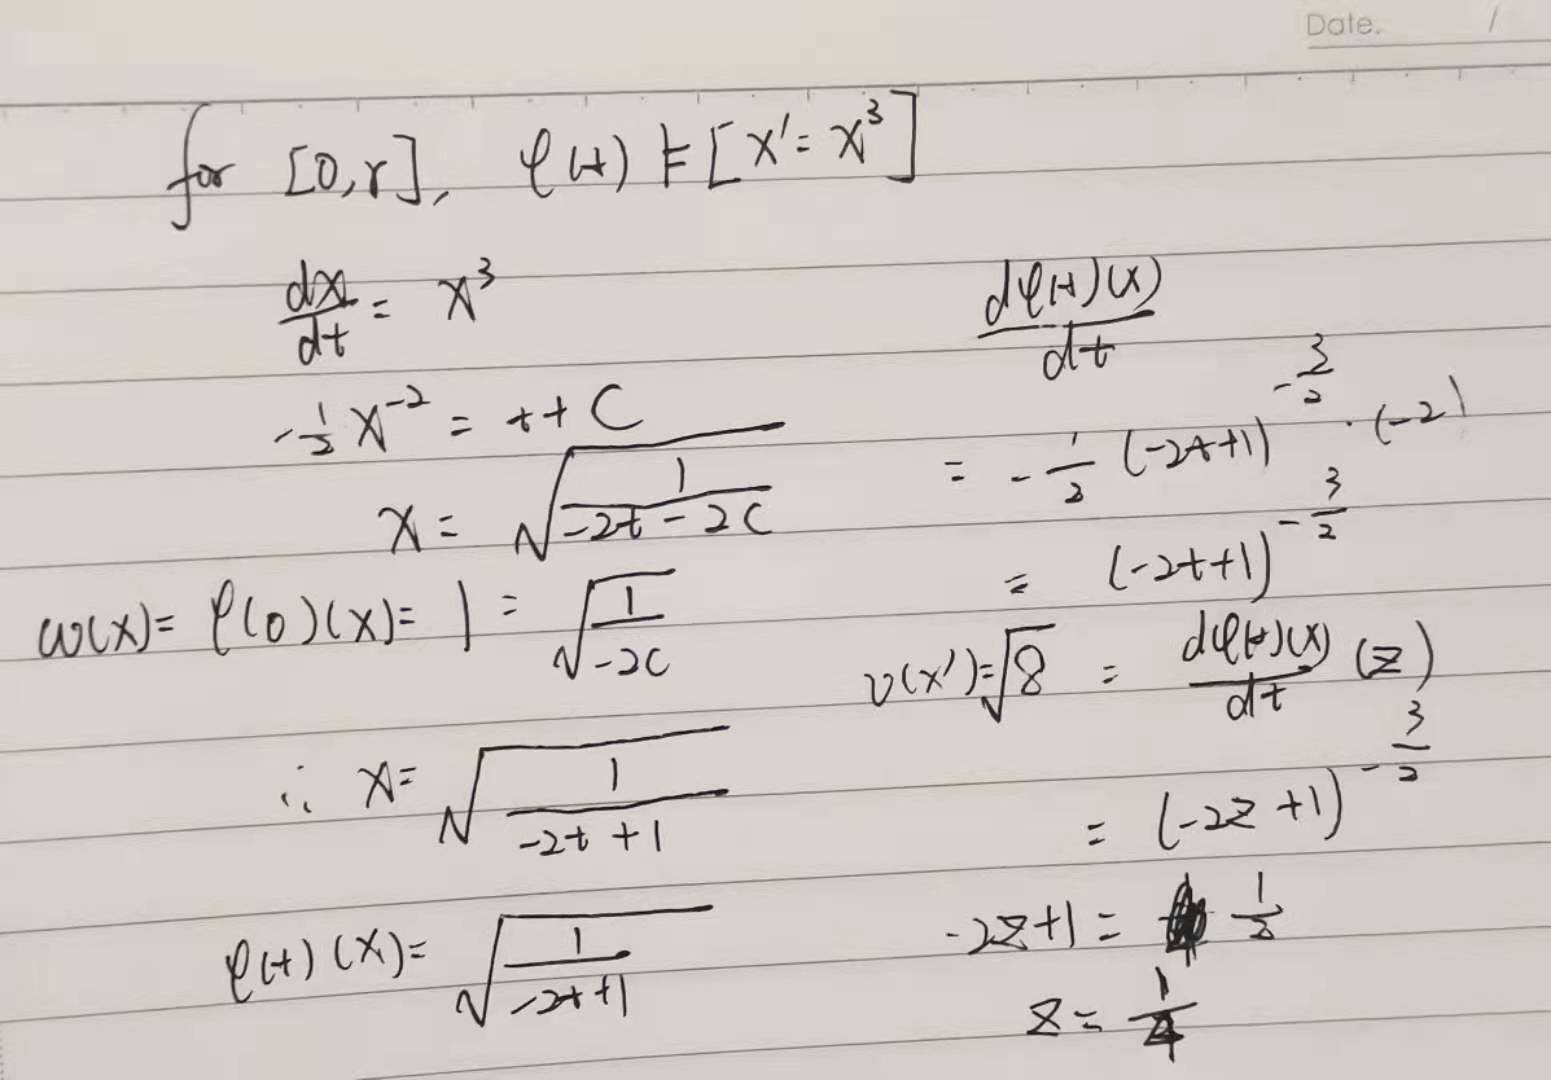 Date. /
for [0,r], φ(t) ⊨ [x'= x³]
dx/dt = x³
-1/2 x⁻² = t + C
x = √(1/(-2t - 2C))
ω(x) = φ(0)(x) = 1 = √(1/(-2C))
∴ x = √(1/(-2t + 1))
φ(t)(x) = √(1/(-2t+1))
dφ(t)(x)/dt
= -1/2 (-2t+1)^(-3/2) · (-2)
= (-2t+1)^(-3/2)
ν(x') = √8 = dφ(t)(x)/dt (z)
= (-2z+1)^(-3/2)
-2z+1 = 1/2
z = 1/4